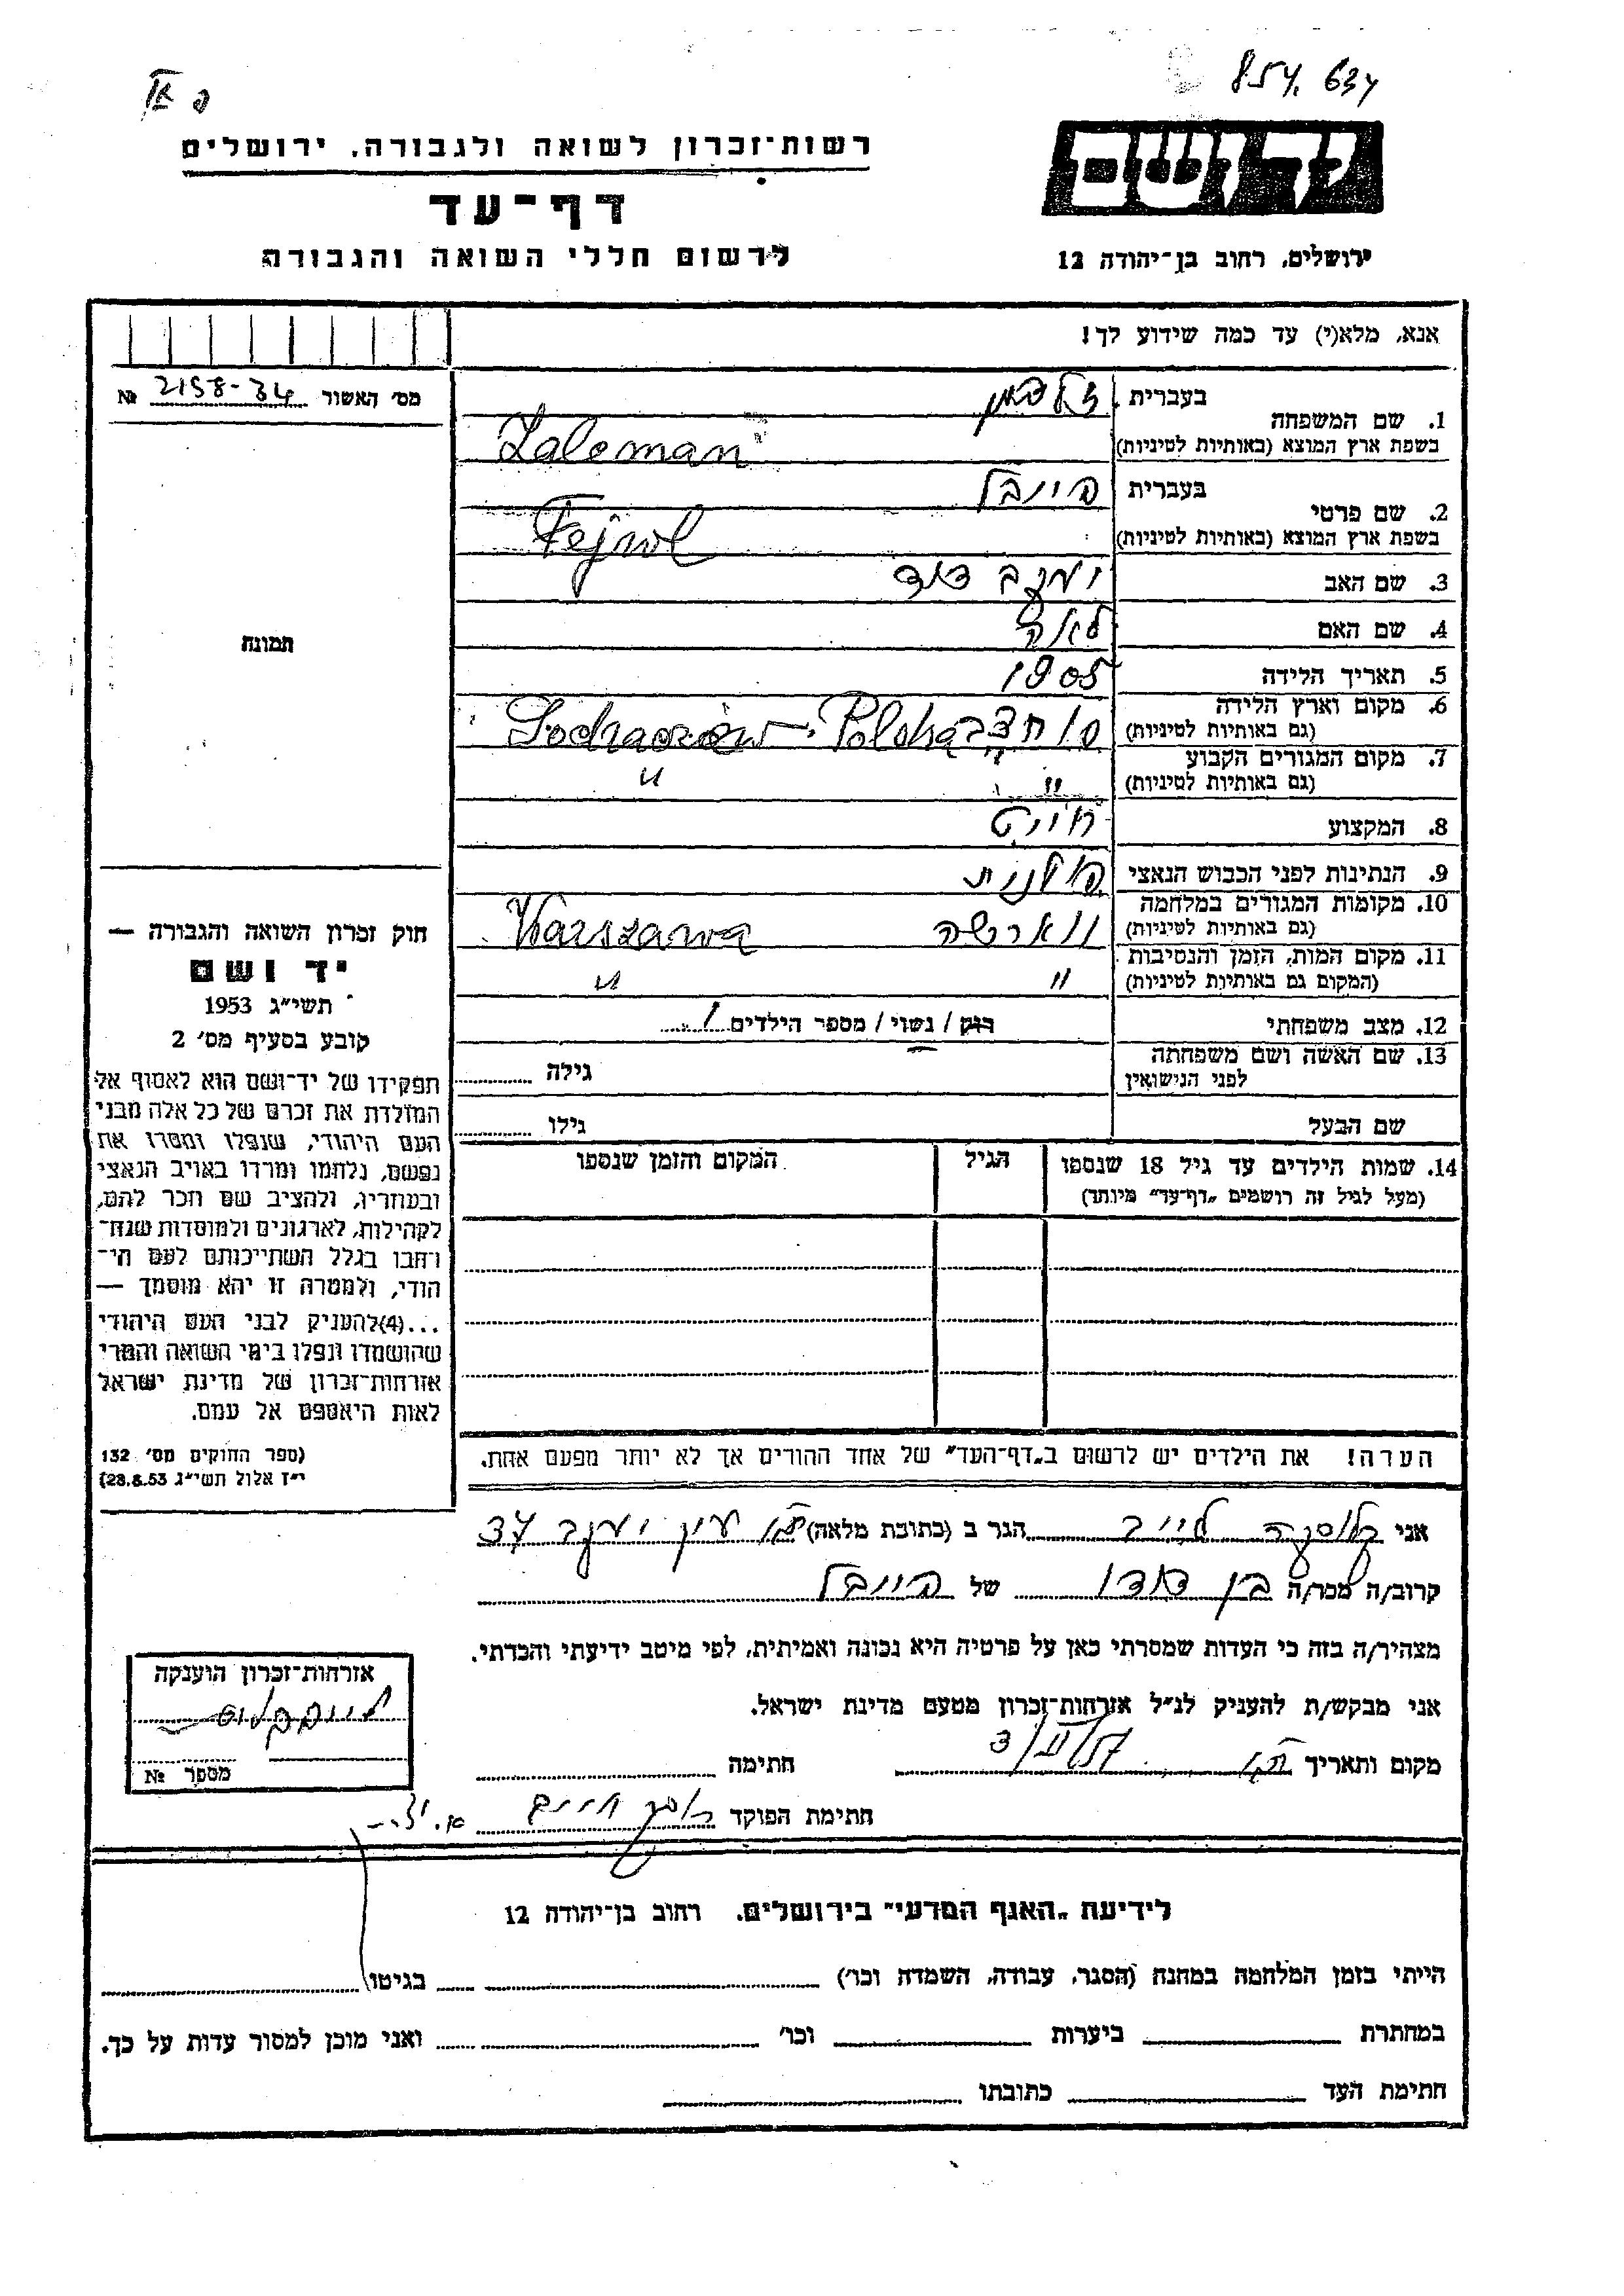 854. 634
רשות־זכרון לשואה ולגבורה, ירושלים
יד ושם
דף־עד
לרשום חללי השואה והגבורה
ירושלים, רחוב בן־יהודה 12
אנא, מלא(י) עד כמה שידוע לך!
מס׳ האשור 2158-34 №
1. שם המשפחה
בעברית זלצמן
בשפת ארץ המוצא (באותיות לטיניות) Zalcman
2. שם פרטי
בעברית פייבל
בשפת ארץ המוצא (באותיות לטיניות) Fejwel
3. שם האב יעקב דוד
4. שם האם לאה
5. תאריך הלידה 1905
6. מקום וארץ הלידה
(גם באותיות לטיניות) Sochaczew - Polska
7. מקום המגורים הקבוע
(גם באותיות לטיניות) " "
8. המקצוע חייט
9. הנתינות לפני הכבוש הנאצי פולנית
10. מקומות המגורים במלחמה
(גם באותיות לטיניות) ווארשה Warszawa
11. מקום המות, הזמן והנסיבות
(המקום גם באותיות לטיניות) " "
12. מצב משפחתי רווק / נשוי / מספר הילדים 1
13. שם האשה ושם משפחתה
לפני הנישואין
גילה
שם הבעל גילו
14. שמות הילדים עד גיל 18 שנספו
(מעל לגיל זה רושמים „דף־עד״ מיוחד)
הגיל
המקום והזמן שנספו
הערה! את הילדים יש לרשום ב„דף־העד״ של אחד ההורים אך לא יותר מפעם אחת.
תמונה
חוק זכרון השואה והגבורה —
יד ושם
תשי״ג 1953
קובע בסעיף מס׳ 2
תפקידו של יד־ושם הוא לאסוף אל
המולדת את זכרם של כל אלה מבני
העם היהודי, שנפלו ומסרו את
נפשם, נלחמו ומרדו באויב הנאצי
ובעוזריו, ולהציב שם וזכר להם,
לקהילות, לארגונים ולמוסדות שנח־
רבו בגלל השתייכותם לעם הי־
הודי, ולמטרה זו יהא מוסמך —
...(4)להעניק לבני העם היהודי
שהושמדו ונפלו בימי השואה והמרי
אזרחות־זכרון של מדינת ישראל
לאות היאספם אל עמם.
(ספר החוקים מס׳ 132
י״ז אלול תשי״ג 28.8.53)
אני לייב הגר ב (כתובת מלאה) עין יעקב 34
קרוב/ה מכר/ה בן דודו של פייבל
מצהיר/ה בזה כי העדות שמסרתי כאן על פרטיה היא נכונה ואמיתית, לפי מיטב ידיעתי והכרתי.
אני מבקש/ת להעניק לנ״ל אזרחות־זכרון מטעם מדינת ישראל.
מקום ותאריך ת״א חתימה
חתימת הפוקד
אזרחות־זכרון הוענקה
מספר №
לידיעת „האגף המדעי״ בירושלים, רחוב בן־יהודה 12
הייתי בזמן המלחמה במחנה (הסגר, עבודה, השמדה וכו׳) בגיטו
במחתרת ביערות וכו׳ ואני מוכן למסור עדות על כך.
חתימת העד כתובתו